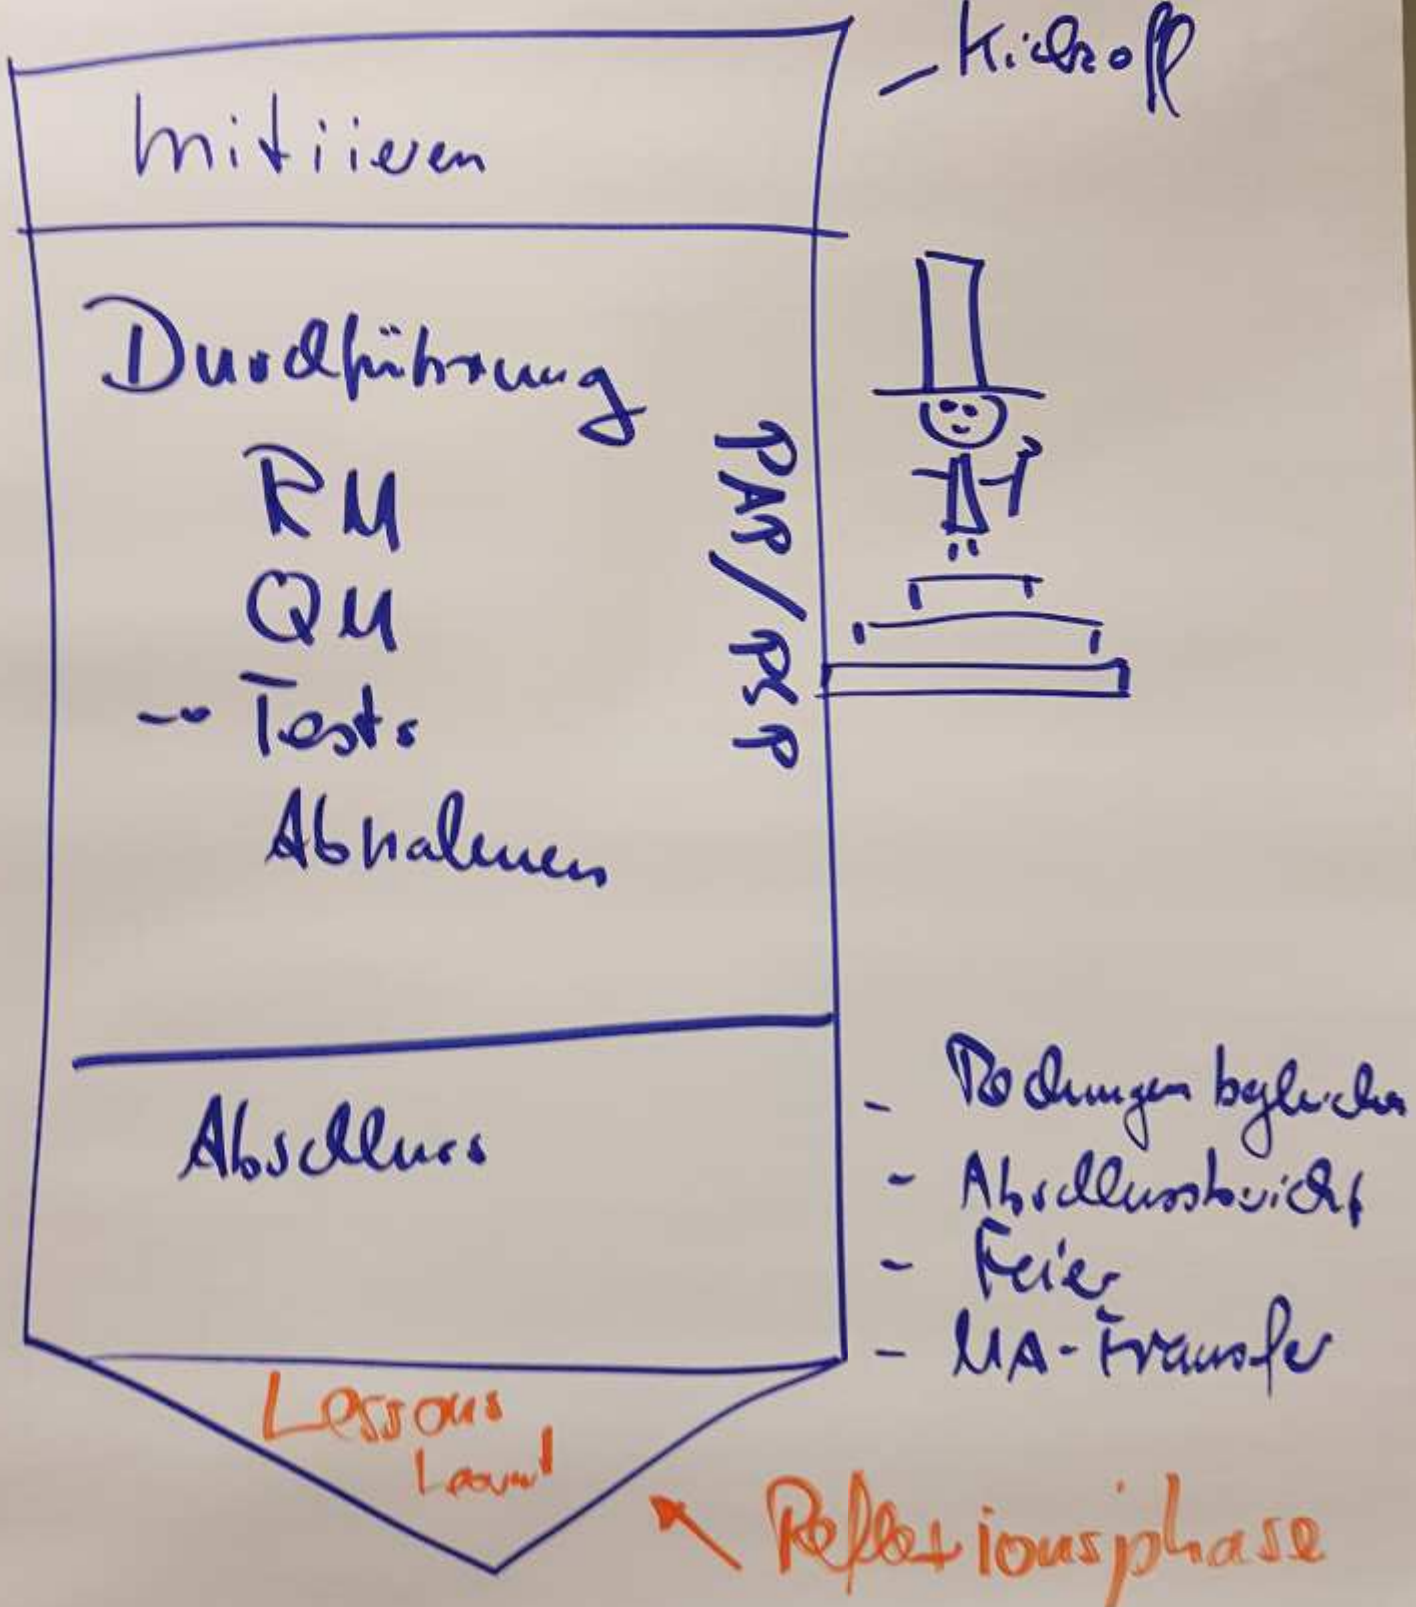 - Kickoff
Initiieren
Durchführung
RM
QM
-- Tests
Abnahmen
PAP/PSP
Abschluss
- Rechnungen begleichen
- Abschlussbericht
- Feier
- MA-Transfer
Lessons
Learned
Reflexionsphase